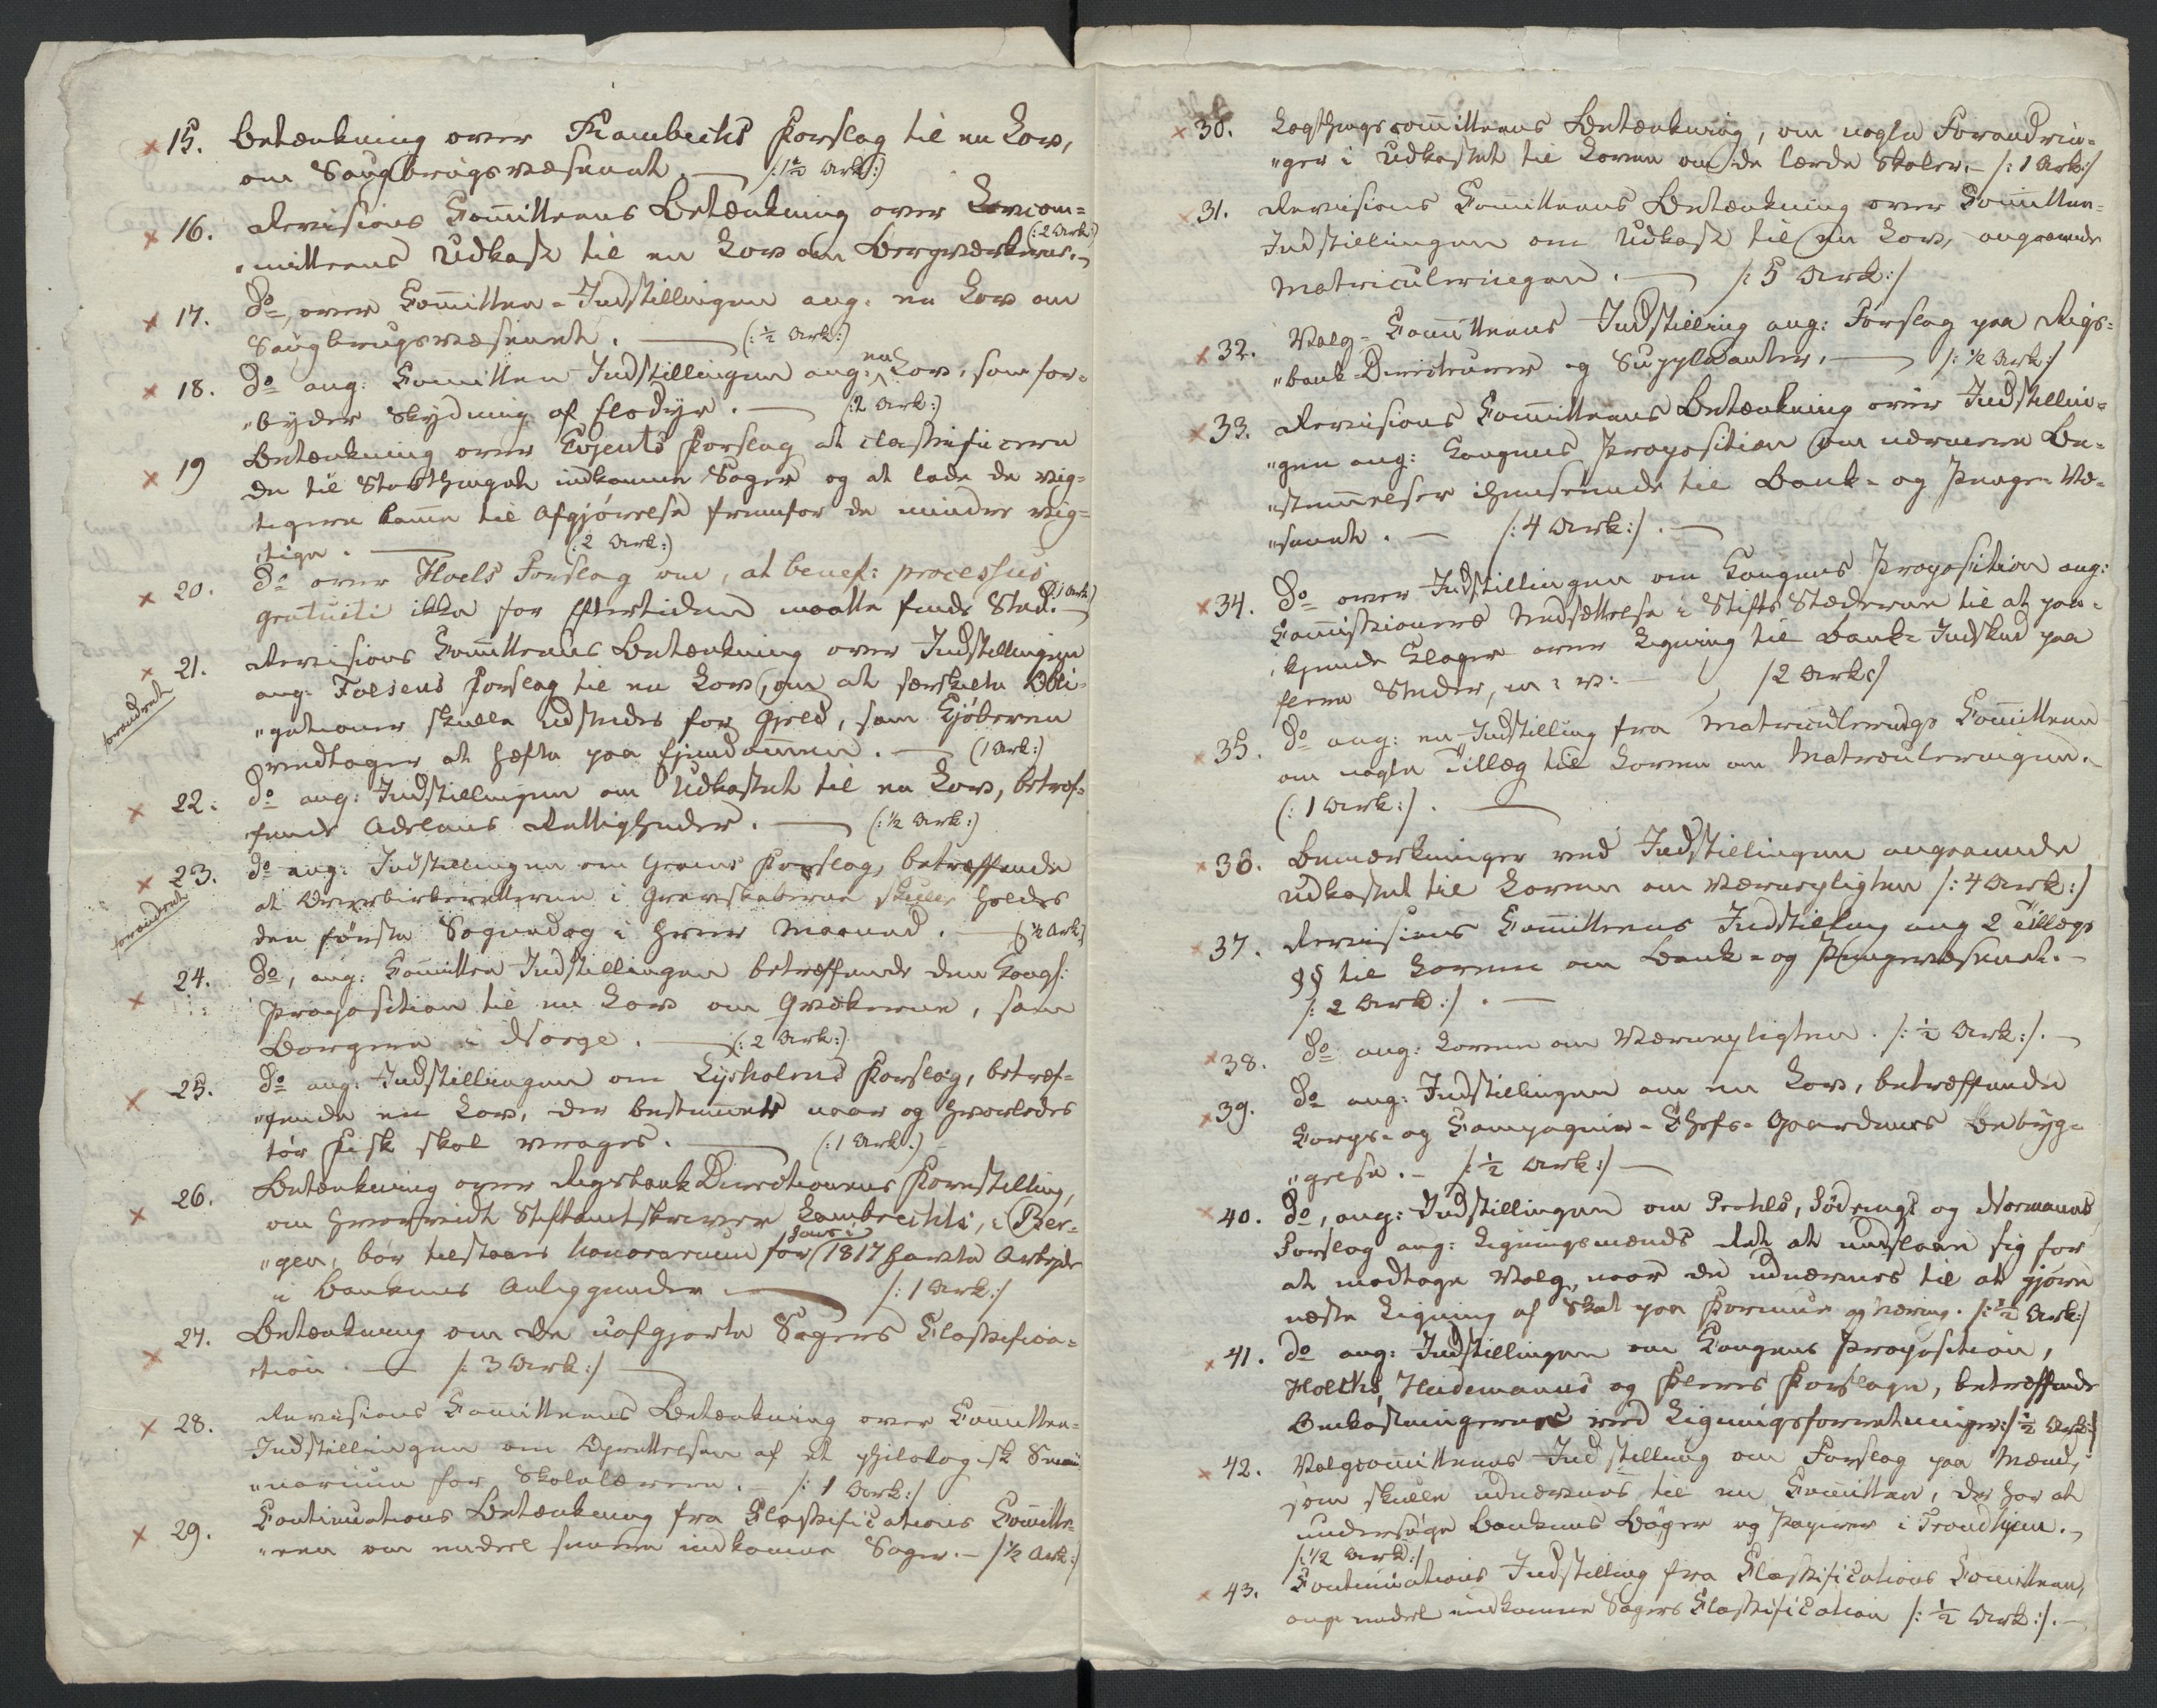 15. Betænkning over Frambechs Forslag til en Lov,
om Saugbrugsvæsenet. — /: 1½ Ark :/
16. Revisions Committeens Betænkning over Lovcom=
"mitteens Udkast til en Lov om Bergværkerne. — (: 2 Ark :)
17. Do, over Committee-Indstillingen ang: en Lov om
Saugbrugsvæsenet. — (: ½ Ark :)
18. Do ang: Committee Indstillingen ang: en Lov, som for=
"byder Skydning af Elsdyr. — (: 2 Ark :)
19 Betænkning over Evjents Forslag at classificere
de til Storthinget indkomne Sager og at lade de vig=
tigere komme til Afgjørelse fremfor de mindre vig=
tige. — (: 2 Ark :)
20. Do over Hoels Forslag om, at benef: processus
gratuiti ikke for Eftertiden maatte finde Sted. — (: 1 Ark :)
21. Revisions Committeens Betænkning over Indstillingen
forandret
ang: Falsens Forslag til en Lov, om at særskilte Obli=
"gationer skulle udstedes for Gjeld, som Kjøberen
vedtager at hæfte paa Ejendommen. — (1 Ark :)
22. Do ang: Indstillingen om Udkastet til en Lov, betræf=
fende Adelens Rettigheder. — (: ½ Ark :)
23. Do ang: Indstillingen om Grams Forslag, betræffende
forandret
at Overbirkeretterne i Grevskaberne skulle holdes
den første Sognedag i hver Maaned. — (: ½ Ark :)
24. Do, ang: Committee Indstillingen betræffende den Kongl:
Proposition til en Lov om Qvækerne, som
Borgere i Norge. — (: 2 Ark :)
25. Do ang: Indstillingen om Lysholms Forslag, betræf=
"fende en Lov, der bestemmer naar og hvorledes
tør Fisk skal vrages. — (: 1 Ark :)
26. Betænkning over Rigsbank Directionens Forestilling,
om hvorvidt Stiftamtskriver Lambrechts, i Ber=
"gen, bør tilstaaes honorarium for hans i 1817 havte Arbeide
i Bankens Anliggender — /: 1 Ark :/
27. Betænkning om de uafgjorte Sagers Classifica=
tion. — /: 3 Ark :/
28. Revisions Committeens Betænkning over Committee=
Indstillingen om Oprettelsen af et philologisk Semi=
"narium for Skolelærere. — /: 1 Ark :/
29. Continuations Betænkning fra Classifications Committe=
"een om endeel senere indkomne Sager. — /: ½ Ark :/
30. Lagthingscommitteens Betænkning, om nogle Forandrin=
"ger i Udkastet til Loven om de lærde Skoler. — /: 1 Ark :/
31. Revisions Committeens Betænkning over Committee=
Indstillingen om Udkast til en Lov, angaaende
Matriculeringen. — /: 5 Ark :/
32. Valg-Committeens Indstilling ang: Forslag paa Rigs=
"bank-Directeurer og Suppleanter. — /: ½ Ark :/
33. Revisions Committeens Betænkning over Indstillin=
"gen ang: Kongens Proposition om nærmere Be=
"stemmelser henseende til Bank- og Penge-Væ=
"senet. — /: 4 Ark :/. —
34. Do over Indstillingen om Kongens Proposition ang:
Commissioners Nedsættelse i Stifts Stæderne til at paa=
kjende Klager over Ligning til Bank-Indskud paa
flere Steder, m: v: — /: 2 Ark :/
35. Do ang: en Indstilling fra Matriculerings Committeen
om nogle Tillæg til Loven om Matriculeringen. —
(: 1 Ark :/. —
36. Bemærkninger ved Indstillingen angaaende
Udkastet til Loven om Værnepligten /: 4 Ark :/
37. Revisions Committeens Indstilling ang 2 Tillægs
§§ til Loven om Bank- og Pengevæsenet. —
/: 2 Ark :/. —
38. Do ang: Loven om Værnepligten. /: ½ Ark :/. —
39. Do ang: Indstillingen om en Lov, betræffende
Corps- og Compagnie-Chefs-Gaardenes Bebyg=
"gelse. — /: ½ Ark :/ —
40. Do, ang: Indstillingen om Prahls, Sødrings og Normanns
Forslag ang: Ligningsmænds Ret at undslaae sig for
at modtage Valg, naar de udnævnes til at gjøre
næste Ligning af Skat paa Formue og Næring. /: ½ Ark :/
41. Do ang: Indstillingen om Kongens Proposition,
Holcks, Heidemanns og Fleres Forslage, betræffende
Omkostningerne ved Ligningsforretninger /: ½ Ark :/
42. Valgcommitteens Indstilling om Forslag paa Mænd,
som skulle udnævnes til en Committee, der har at
undersøge Bankens Bøger og Papirer i Trondhjem. —
/: ½ Ark :/
43. Continuations Indstilling fra Classifications Committeen,
ang: endeel indkomne Sagers Classification /: ½ Ark :/. —